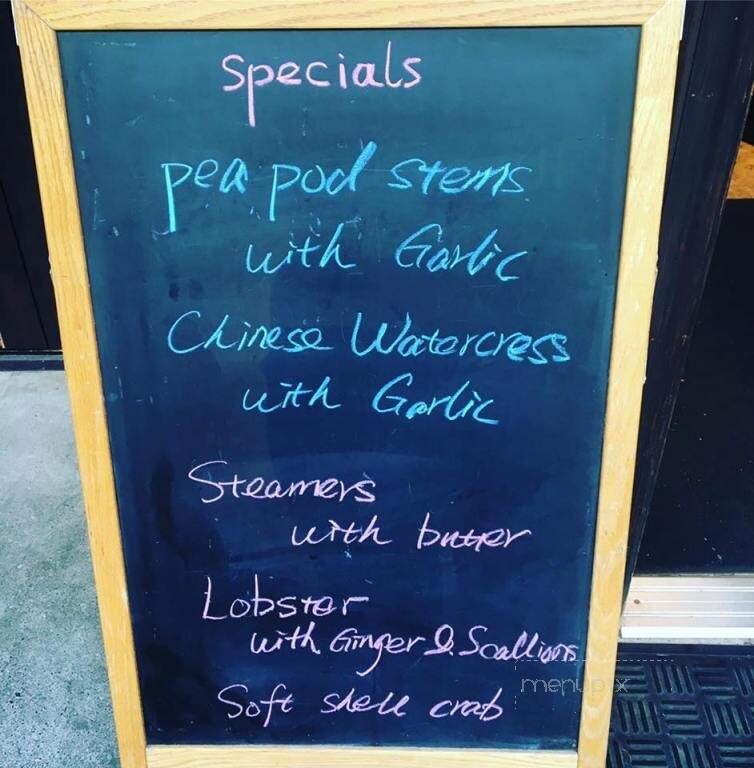 Specials
pea pod stems
with Garlic
Chinese Watercress
with Garlic
Steamers
with butter
Lobster
with Ginger & Scallions
Soft shell crab
menupix